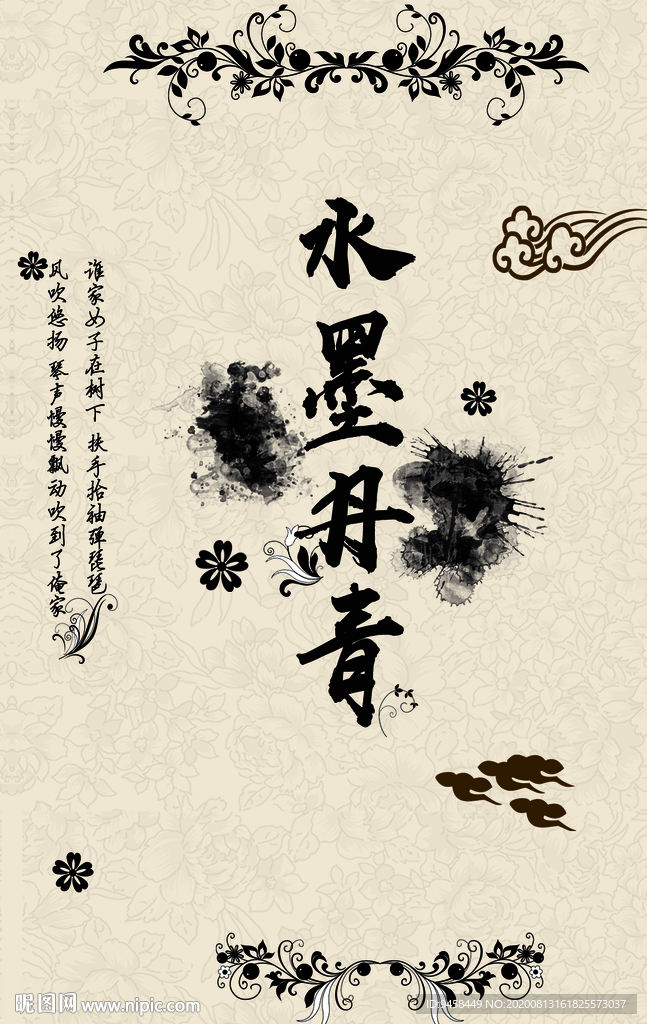 水墨丹青
谁家女子在树下 扶手拾袖弹琵琶
风吹悠扬 琴声慢慢飘动吹到了俺家
昵图网 www.nipic.com
ID:9458449 NO:20200813161825573037